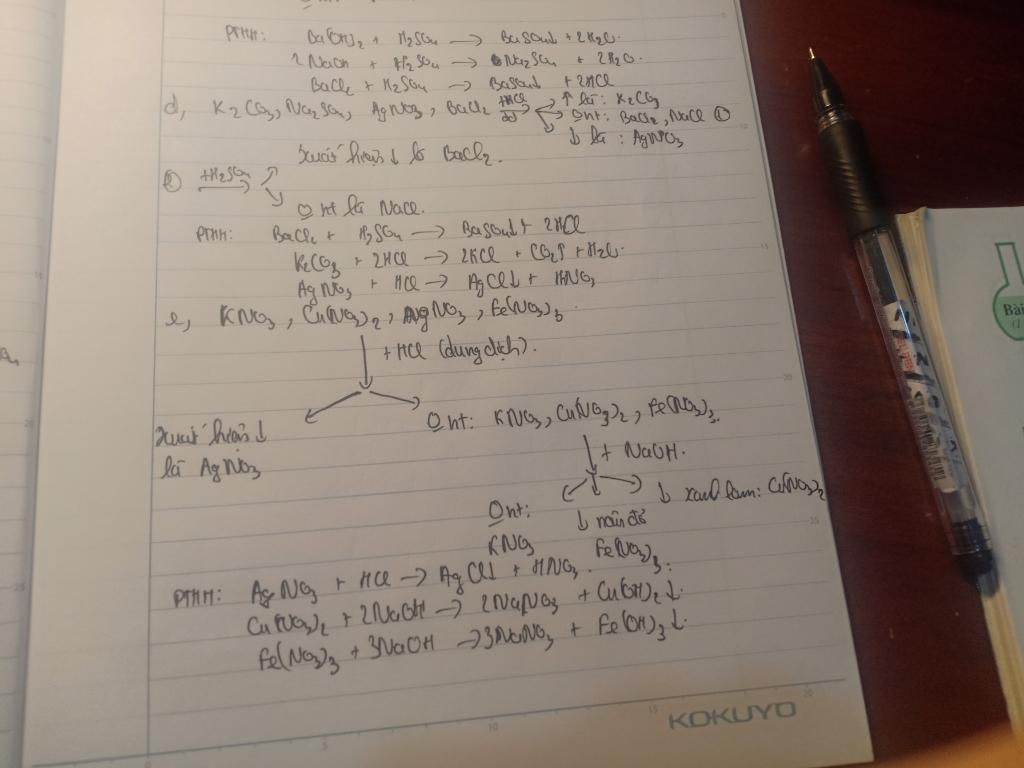 PTHH: Ba(OH)2 + H2SO4 → BaSO4↓ + 2H2O.
2NaOH + H2SO4 → Na2SO4 + 2H2O.
BaCl2 + H2SO4 → BaSO4↓ + 2HCl
d, K2CO3, Na2SO4, AgNO3, BaCl2 +HCl → ↑ là: K2CO3
0 ht: BaCl2, NaCl ①
↓ là: AgNO3
xuất hiện ↓ là BaCl2.
① +H2SO4 →
0 ht là NaCl.
PTHH: BaCl2 + H2SO4 → BaSO4↓ + 2HCl
K2CO3 + 2HCl → 2KCl + CO2↑ + H2O.
AgNO3 + HCl → AgCl↓ + HNO3
e, KNO3, Cu(NO3)2, AgNO3, Fe(NO3)3.
+ HCl (dung dịch).
xuất hiện ↓
là AgNO3
0 ht: KNO3, Cu(NO3)2, Fe(NO3)3.
+ NaOH.
↓ xanh lam: Cu(NO3)2
0 ht:
KNO3
↓ nâu đỏ
Fe(NO3)3.
PTHH: AgNO3 + HCl → AgCl↓ + HNO3.
Cu(NO3)2 + 2NaOH → 2NaNO3 + Cu(OH)2↓.
Fe(NO3)3 + 3NaOH → 3NaNO3 + Fe(OH)3↓.
KOKUYO
Bài